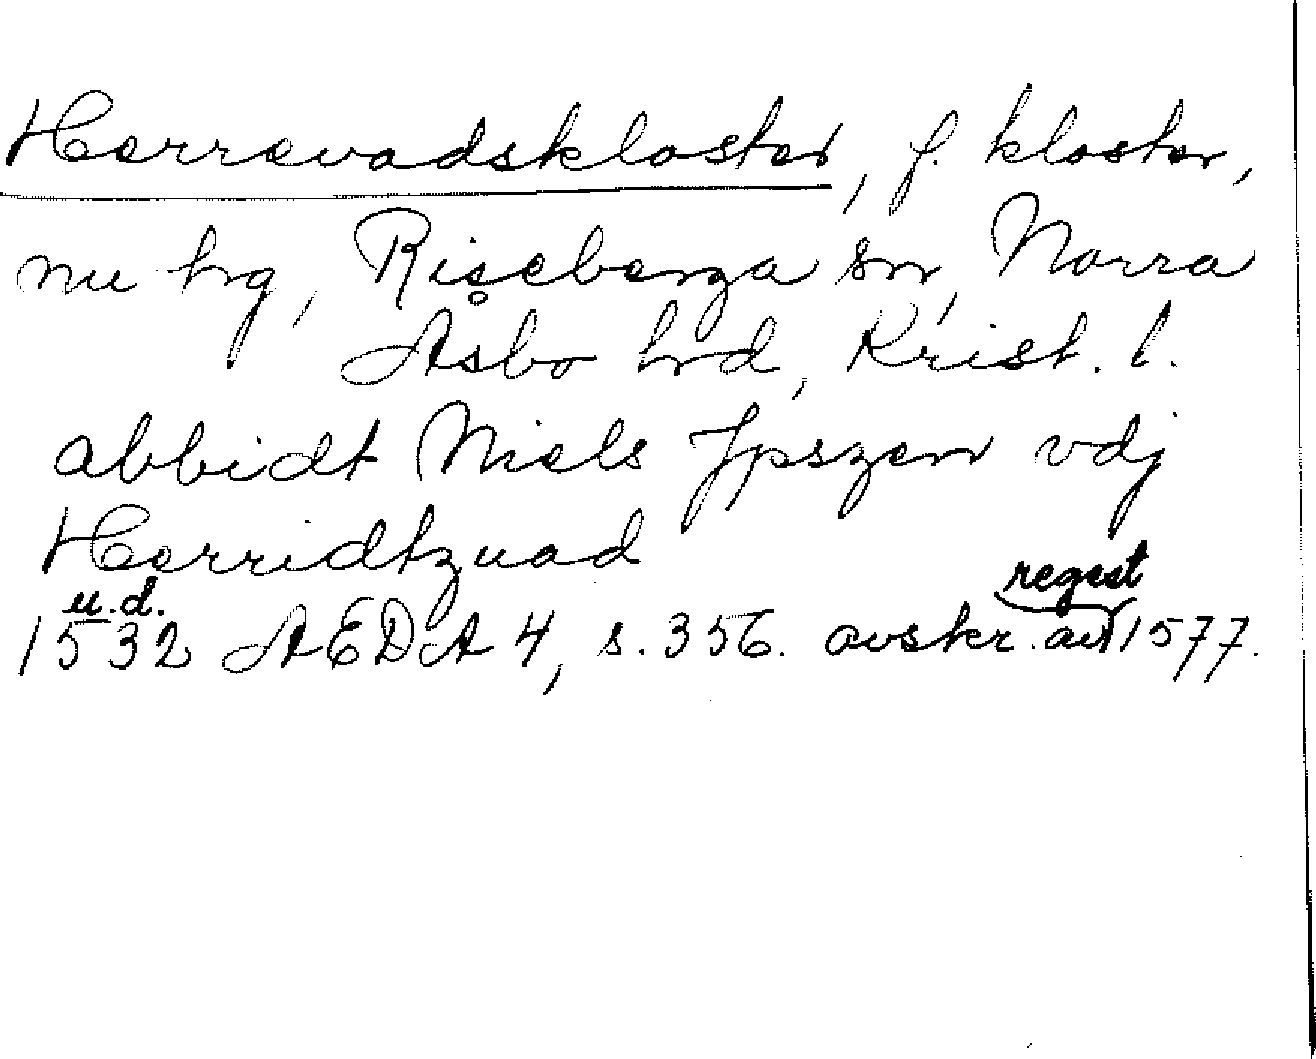 Herrevadskloster, f. kloster,
nu hrg, Riseberga sn, Norra
Åsbo hrd, Krist. l.
abbidt Niels Jpszen vdj
Herridtzuad
u.d.
regest
1532 AEDA 4, s. 356. avskr. av 1577.